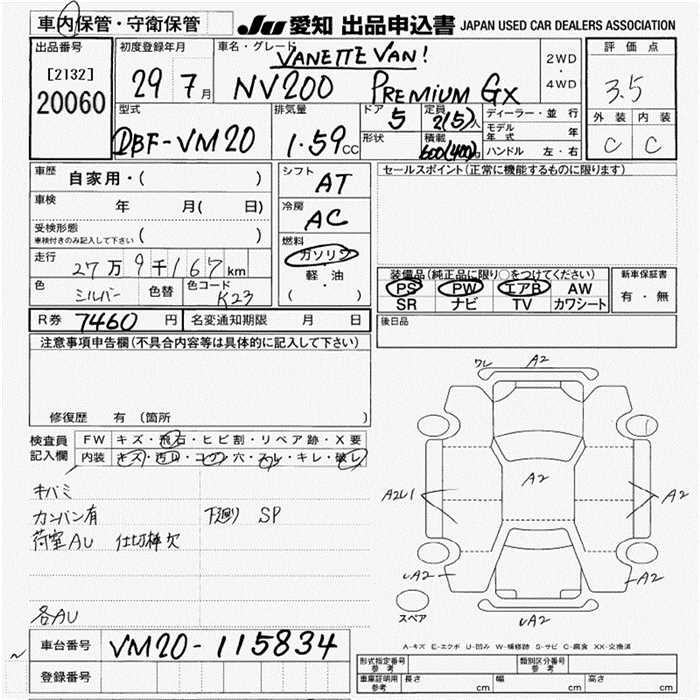 車内保管・守衛保管
JU 愛知 出品申込書 JAPAN USED CAR DEALERS ASSOCIATION
出品番号
[2132]
20060
初度登録年月
29年 7月
車名・グレード
VANETTE VAN!
NV200 PREMIUM GX
2WD
・
4WD
評価点
3.5
外装 内装
C C
型式
DBF-VM20
排気量
1.59cc
ドア 5
定員 2(5)人
形状
積載 600(400)
ディーラー・並行
モデル年式 年
ハンドル 左・右
車歴 自家用・( )
車検 年 月( 日)
受検形態
車検付きのみ記入して下さい ( )
走行
27万9千167km
色 シルバー 色替 色コード K23
シフト AT
冷房 AC
燃料
ガソリン
・
軽・油
( )
セールスポイント(正常に機能するものに限ります)
装備品(純正品に限り○をつけてください)
PS PW エアB AW
SR ナビ TV カワシート
新車保証書
有・無
R券 7460円 名変通知期限 月 日
後日品
注意事項申告欄(不具合内容等は具体的に記入して下さい)
修復歴 有 (箇所 )
検査員記入欄
FW キズ・飛石・ヒビ割・リペア跡・X要
内装 キズ・汚れ・コゲ・穴・スレ・キレ・破レ
キバミ
カンバン有 下廻り SP
荷室AU 仕切棒欠
各AU
ワレ A2
A2
A2U1 A2
A2 A2
A2
スペア
A-キズ E-エクボ U-凹み W-補修跡 S-サビ C-腐食 XX-交換済
車台番号 VM20-115834
登録番号
型式指定番号 参考
類別区分番号 参考
車庫証明用 参考 長さ cm 幅 cm 高さ cm